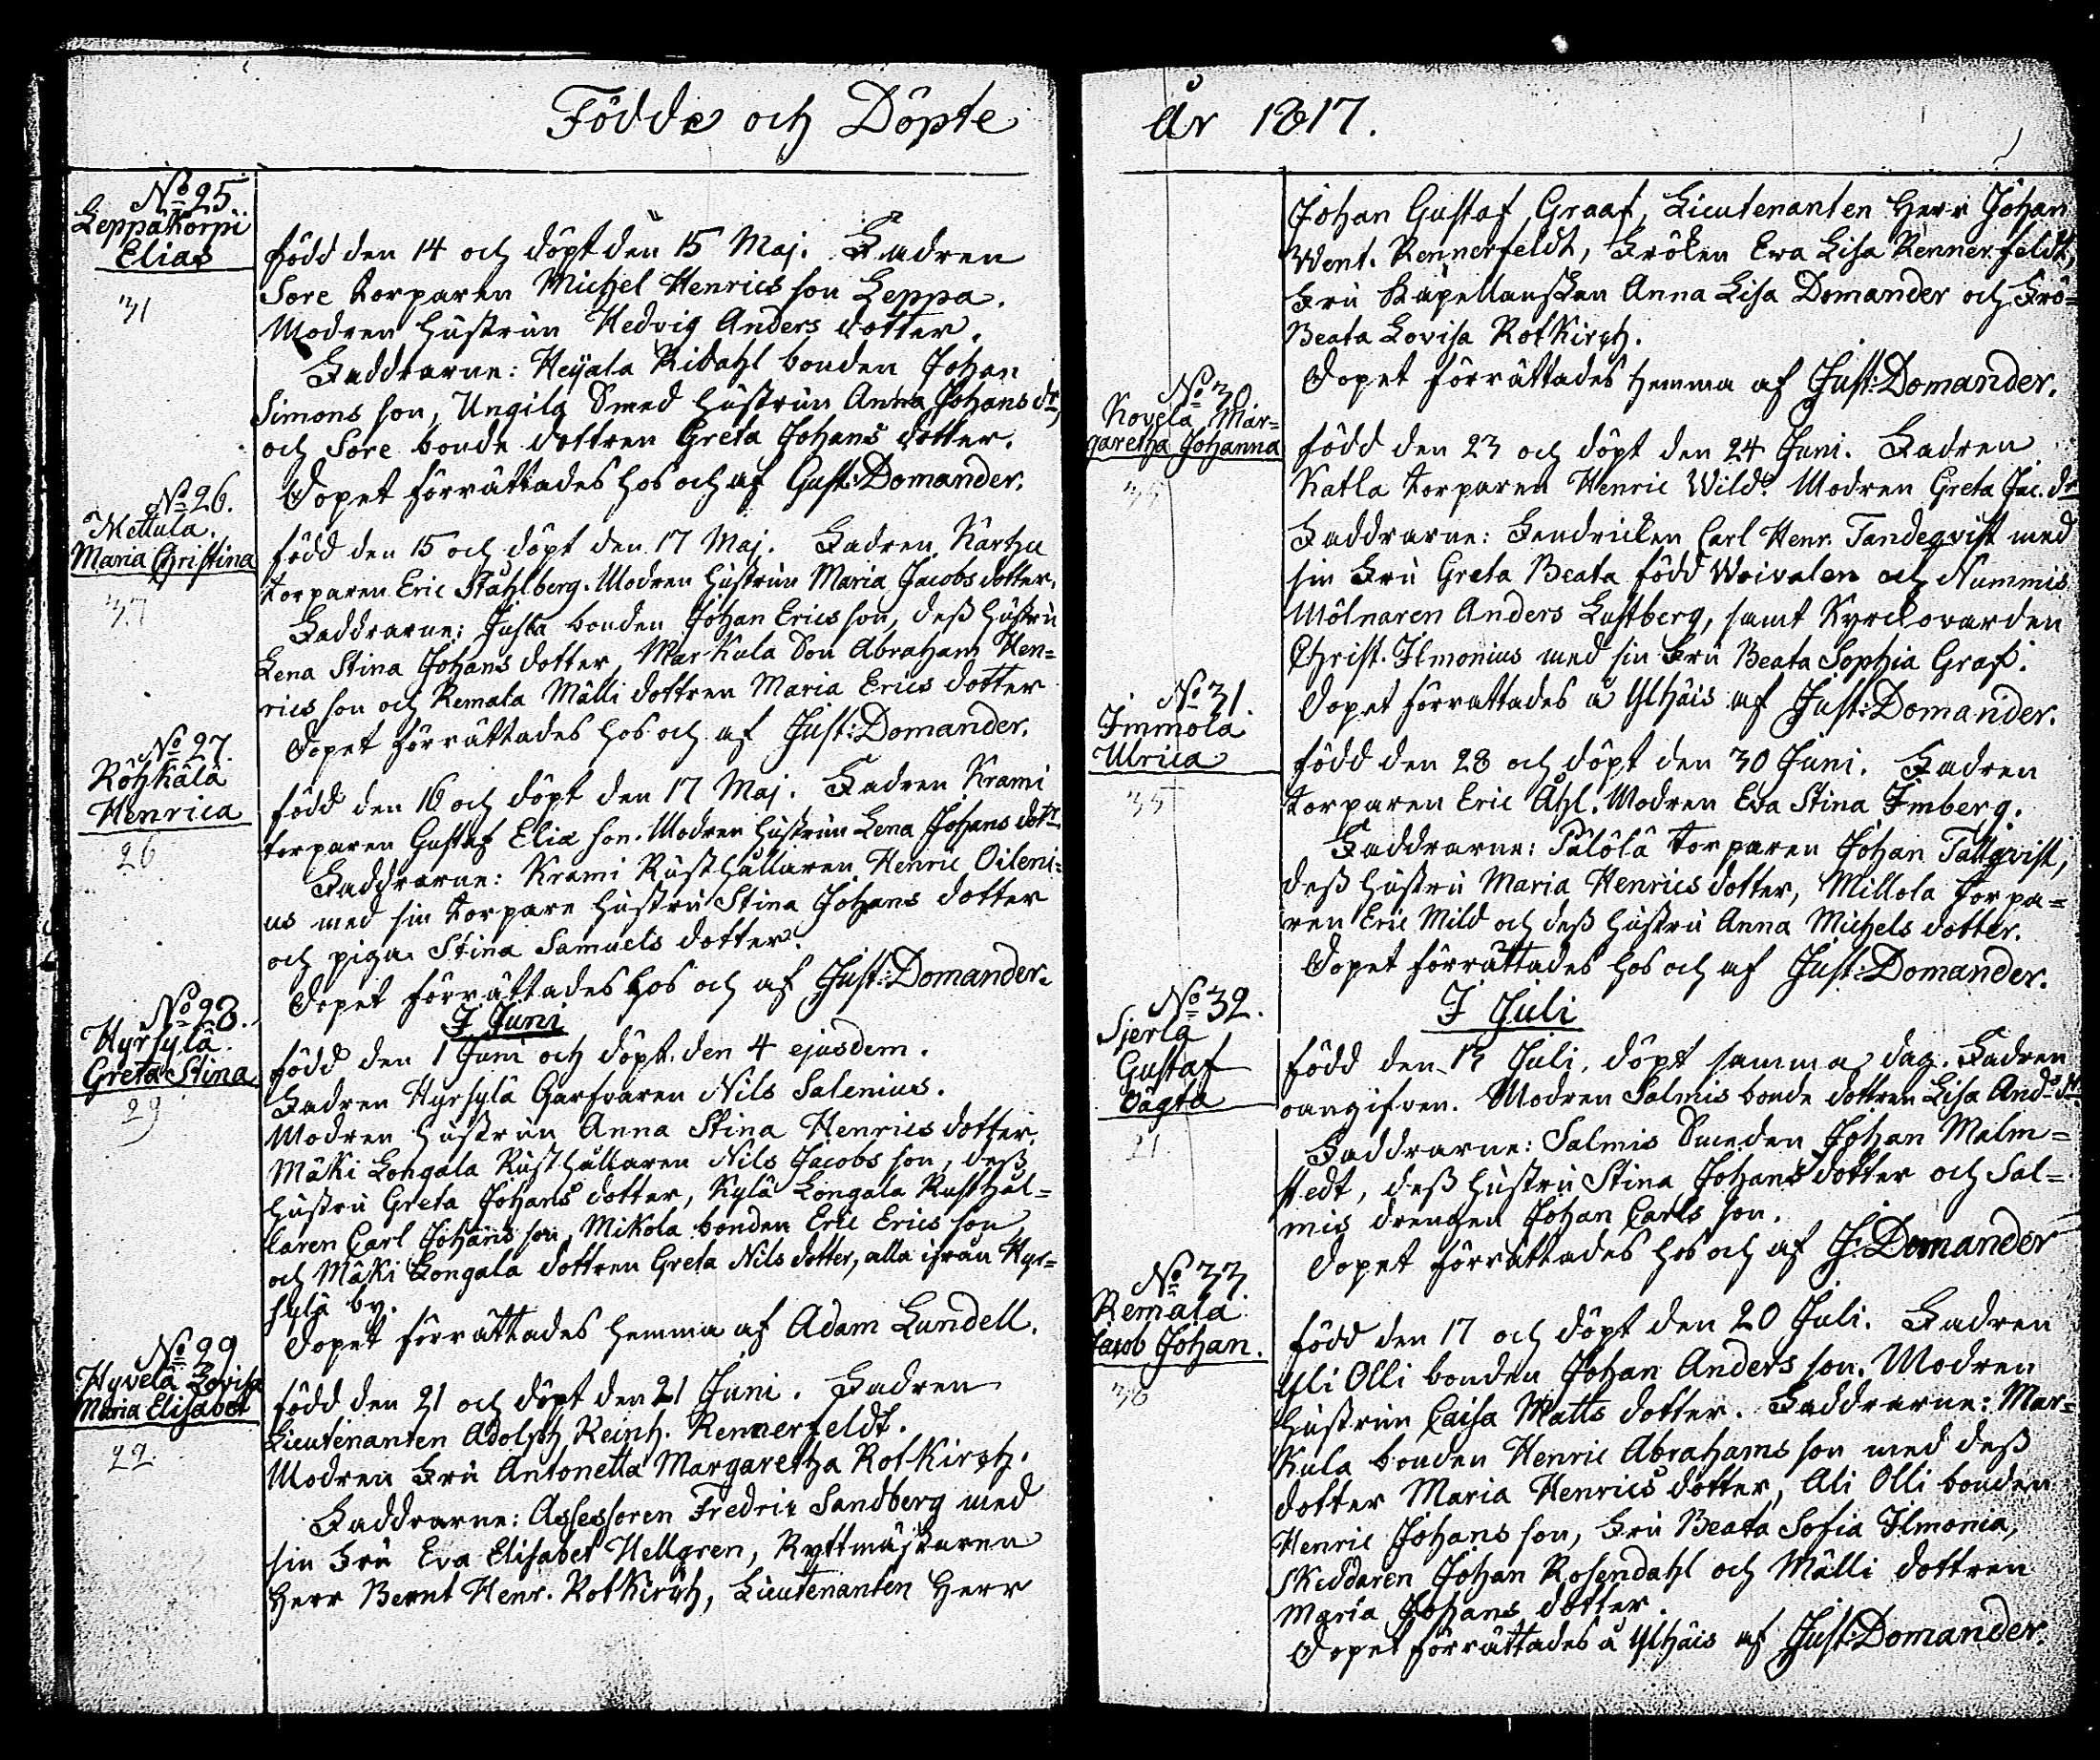 Födde och Döpte
No 25
Leppäkorpi
Elias
31
född den 14 och döpt den 15 Maj. Fadren
Sore torparen Michel Henrics son Leppa.
Modren hustrun Hedvig Anders dotter.
Faddrarne: Heijala Ridahl bonden Johan
Simons son, Ungila Smed hustrun Anna Johans dr,
och Sore bonde dottren Greta Johans dotter.
Dopet förrättades hos och af Gust: Domander.
No 26.
Mettula.
Maria Christina
37
född den 15 och döpt den 17 Maj. Fadren Kärtzu
torparen Eric Ståhlberg. Modren hustrun Maria Jacobs dotter.
Faddrarne: Jusla bonden Johan Erics son, dess hustru
Lena Stina Johans dotter, Markula Son Abraham Hen=
rics son och Remala Mälli dottren Maria Erics dotter
Dopet förrättades hos och af Just: Domander.
No 27.
Röhkälä
Henrica
26
född den 16 och döpt den 17 Maj. Fadren Krami
torparen Gustaf Eliæ son. Modren hustrun Lena Johans dotr.
Faddrarne: Krami Rusthållaren Henric Oileni=
us med sin torpare hustru Stina Johans dotter
och piga Stina Samuels dotter.
Dopet förrättades hos och af Just: Domander.
I Juni
No 28.
Hyrsylä
Greta Stina
29
född den 1 Juni och döpt den 4 ejusdem.
Fadren Hyrsylä Garfvaren Nils Salenius.
Modren hustrun Anna Stina Henrics dotter.
Mäki Longala Rusthållaren Nils Jacobs son, dess
hustru Greta Johans dotter, Kylä Longala Rusthål=
laren Carl Johans son, Mikola bonden Eric Erics son
och Mäki Longala dottren Greta Nils dotter, alla ifrån Hyr=
sylä by.
Dopet förrättades hemma af Adam Lundell.
No 29
Hyvelä Lovisa
Maria Elisabet
22
född den 21 och döpt den 21 Juni. Fadren
Lieutenanten Adolph Reinh. Rennerfeldt.
Modren Fru Antonetta Margaretha Rotkirch.
Faddrarne: Assessoren Fredric Sandberg med
sin Fru Eva Elisabet Hellgren, Ryttmästaren
Herr Bernt Henr. Rotkirch, Lieutenanten Herr
År 1817.
Johan Gustaf Graaf, Lieutenanten Herr Johan
Went. Rennerfeldt, Fröken Ewa Lisa Rennerfeldt,
Fru Kapellanskan Anna Lisa Domander och Frö=
Beata Lovisa Rotkirch.
Dopet förrättades hemma af Just: Domander.
No 30
Kovela Mar=
garetha Johanna
född den 23 och döpt den 24 Juni. Fadren
Katla torparen Henric Wild. Modren Greta Jac. dr
Faddrarne: Fendricken Carl Henr. Tandeqvist med
sin Fru Greta Beata född Woivalen och Nummis
Mölnaren Anders Lustberg, samt Kyrckovarden
Christ. Ilmonius med sin Fru Beata Sophia Graf.
Dopet förrättades å Ylhäis af Just: Domander.
No 31.
Immola
Ulrica
35
född den 28 och döpt den 30 Juni. Fadren
torparen Eric Åhl. Modren Eva Stina Imberg.
Faddrarne: Pälölä torparen Johan Tallqvist,
dess hustru Maria Henrics dotter, Millola torpa=
ren Eric Mild och dess hustru Anna Michels dotter.
Dopet förrättades hos och af Just: Domander.
I Juli
No 32.
Sjerla
Gustaf
Oägta
21
född den 13 Juli, döpt samma dag. Fadren
oangifven. Modren Salmis bonde dottren Lisa Ands dr.
Faddrarne: Salmis Smeden Johan Malm=
stedt, dess hustru Stina Johans dotter och Sal=
mis drengen Johan Carls son.
Dopet förrättades hos och af J: Domander
No 33.
Remala
Jacob Johan.
36
född den 17 och döpt den 20 Juli. Fadren
Yli Olli bonden Johan Anders son. Modren
hustrun Caisa Matts dotter. Faddrarne: Mar=
kula bonden Henric Abrahams son med dess
dotter Maria Henrics dotter, Ali Olli bonden
Henric Johans son, Fru Beata Sofia Ilmonia,
Skeddaren Johan Rosendahl och Mälli dottren
Maria Johans dotter.
Dopet förrättades å Ylhäis af Just: Domander.